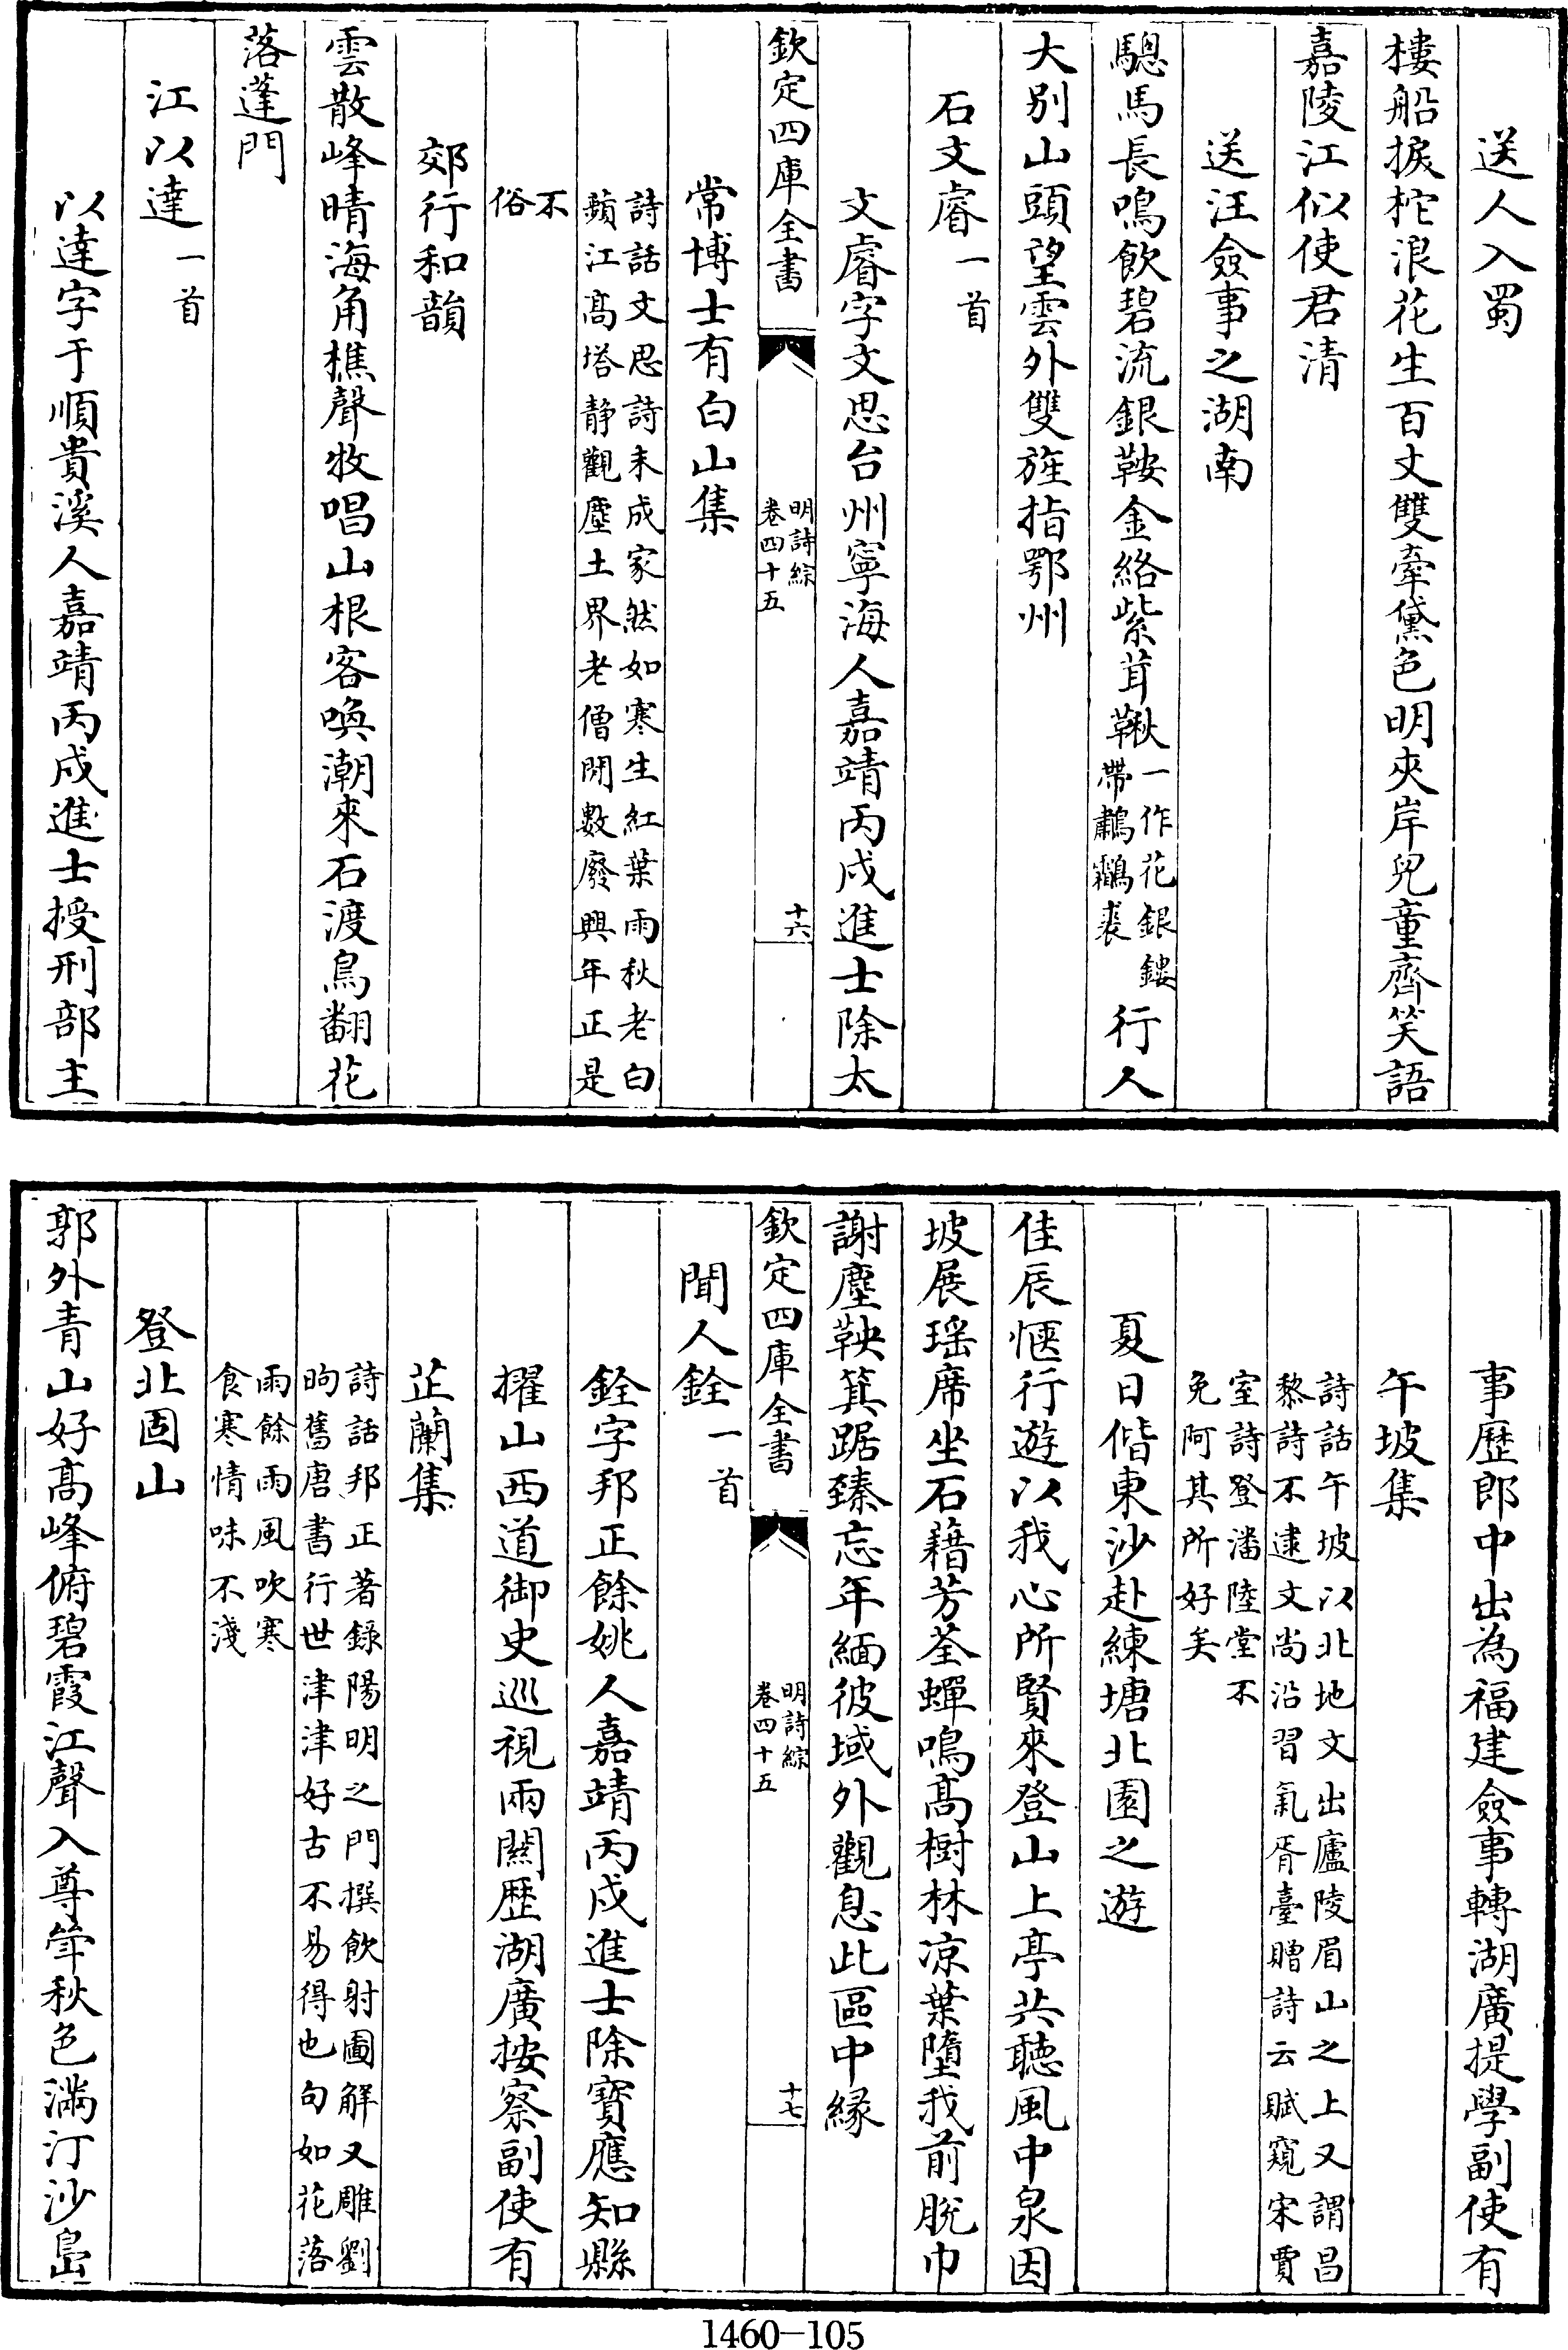 送人入蜀
樓船捩柁浪花生百丈雙牽黛色明夾岸兒童齊笑語
嘉陵江似使君清
送汪僉事之湖南
驄馬長鳴飲碧流銀鞍金絡紫茸鞦一作花銀鏤帶鷫鸘裘行人
大别山頭望雲外雙旌指鄂州
石文睿一首
文睿字文思台州寧海人嘉靖丙戌進士除太
欽定四庫全書
明詩綜
卷四十五
十六
常博士有白山集
詩話文思詩未成家然如寒生紅葉雨秋老白
蘋江髙塔静觀塵土界老僧閒數廢興年正是
不
俗
郊行和韻
雲散峰晴海角樵聲牧唱山根客喚潮來石渡鳥翻花
落蓬門
江以達一首
以達字于順貴溪人嘉靖丙戌進士授刑部主
事歴郎中出為福建僉事轉湖廣提學副使有
午坡集
詩話午坡以北地文出廬陵眉山之上又謂昌
黎詩不逮文尚沿習氣胥臺贈詩云賦窺宋賈
室詩登潘陸堂不
免阿其所好矣
夏日偕東沙赴練塘北園之遊
佳辰愜行遊以我心所賢來登山上亭共聽風中泉因
坡展瑶席坐石藉芳荃蟬鳴髙樹林凉葉墮我前脱巾
謝塵鞅箕踞臻忘年緬彼域外觀息此區中緣
欽定四庫全書
明詩綜
卷四十五
十七
聞人銓一首
銓字邦正餘姚人嘉靖丙戌進士除寶應知縣
擢山西道御史巡視兩關歴湖廣按察副使有
芷蘭集
詩話邦正著錄陽明之門撰飲射圖解又雕劉
昫舊唐書行世津津好古不易得也句如花落
雨餘雨風吹寒
食寒情味不淺
登北固山
郭外青山好髙峰俯碧霞江聲入尊斝秋色滿汀沙島
1460-105